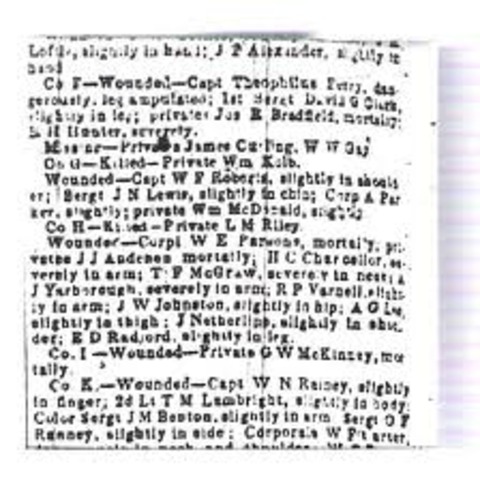 Loftis, slightly in hand; J P Alexander, slightly in
hand
Co F—Wounded—Capt Theophilus Perry, dan-
gerously, leg amputated; 1st Sergt David G Clark,
slightly in leg; privates Jos R Bradfield, mortally;
H Hunter, severely.
Missing—Privates James W W Gay
Co G—Killed—Private Wm Kolb.
Wounded—Capt W F Roberts, slightly in should
er; Sergt J N Lewis, slightly in chin; Corp A Par
ker, slightly; private Wm McDonald, slightly
Co H—Killed—Private L M Riley.
Wounded—Corpl W E Parsons, mortally, pri-
vates J J Andehen mortally; H C Chancellor, se-
verely in arm; T F McGraw, severely in
J Yarborough, severely in arm; R P Varnell, slight-
ly in arm; J W Johnston, slightly in hip; A G
slightly in thigh; J Netherline, slightly in shoul
der; E D Radford, slightly in leg.
Co. I—Wounded—Private G W McKinney, mor
tally.
Co K—Wounded—Capt W N Rainey, slightly
in finger; 2d Lt T M Lambright, slightly in body;
Color Sergt J M Benton, slightly in arm Sergt O F
Ranney, slightly in side; Corporals W